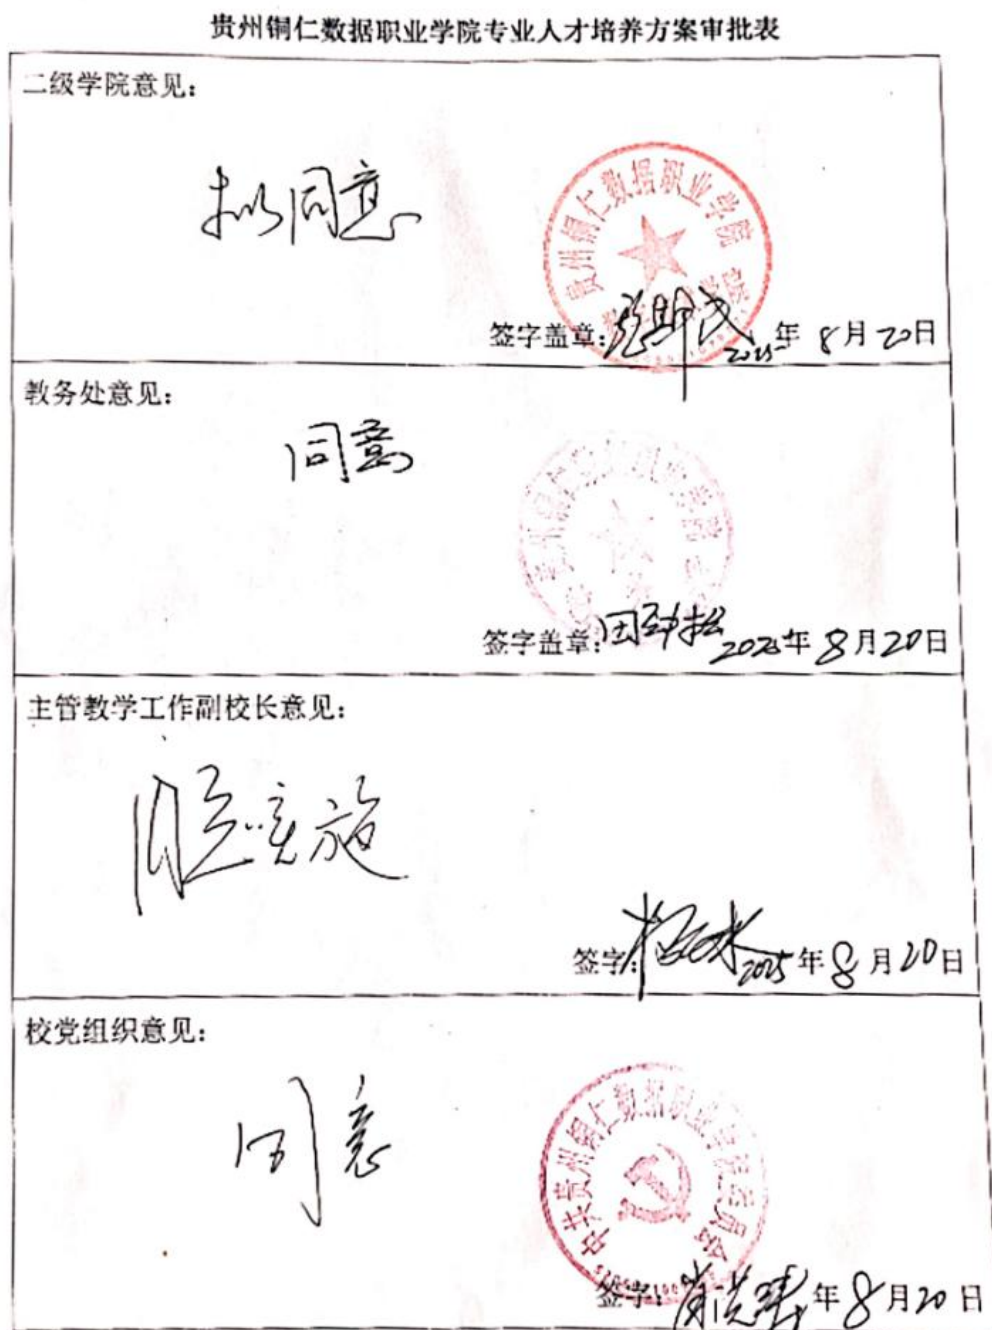 贵州铜仁数据职业学院专业人才培养方案审批表
二级学院意见：
拟同意
贵州铜仁数据职业学院
签字盖章： 2025年 8月20日
教务处意见：
同意
贵州铜仁数据职业学院
签字盖章：田 2025年 8月20日
主管教学工作副校长意见：
同意实施
签字： 2025年 8月20日
校党组织意见：
同意
中共贵州铜仁数据职业学院委员会
签字： 年 8月20日